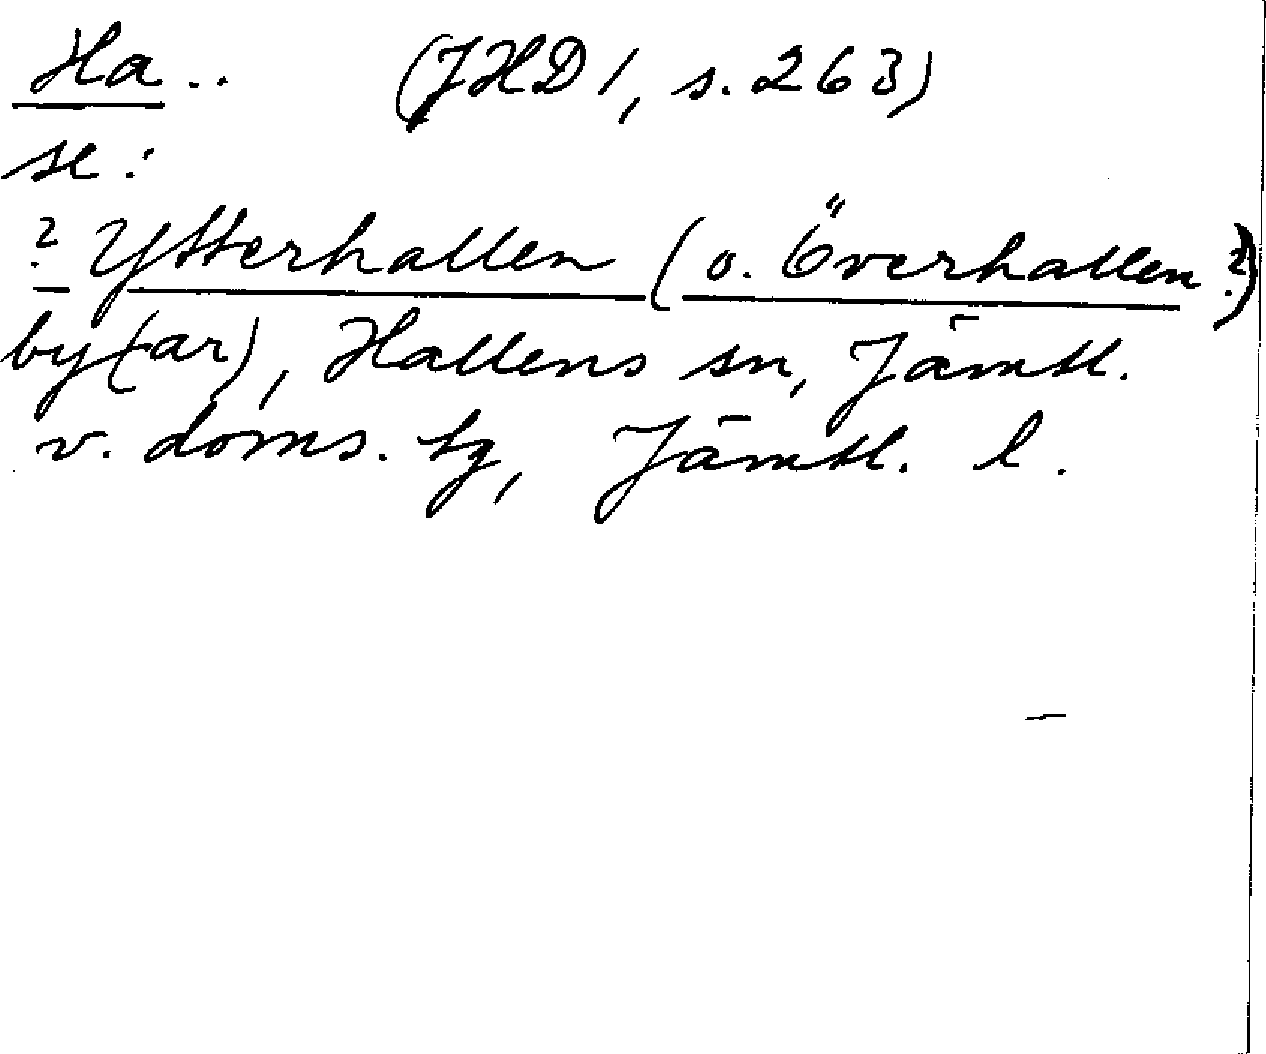 Ha.. (JHD 1, s. 263)
se:
? Ytterhallen (o. Överhallen ?)
by(ar), Hallens sn, Jämtl.
v. doms. tg, Jämtl. l.